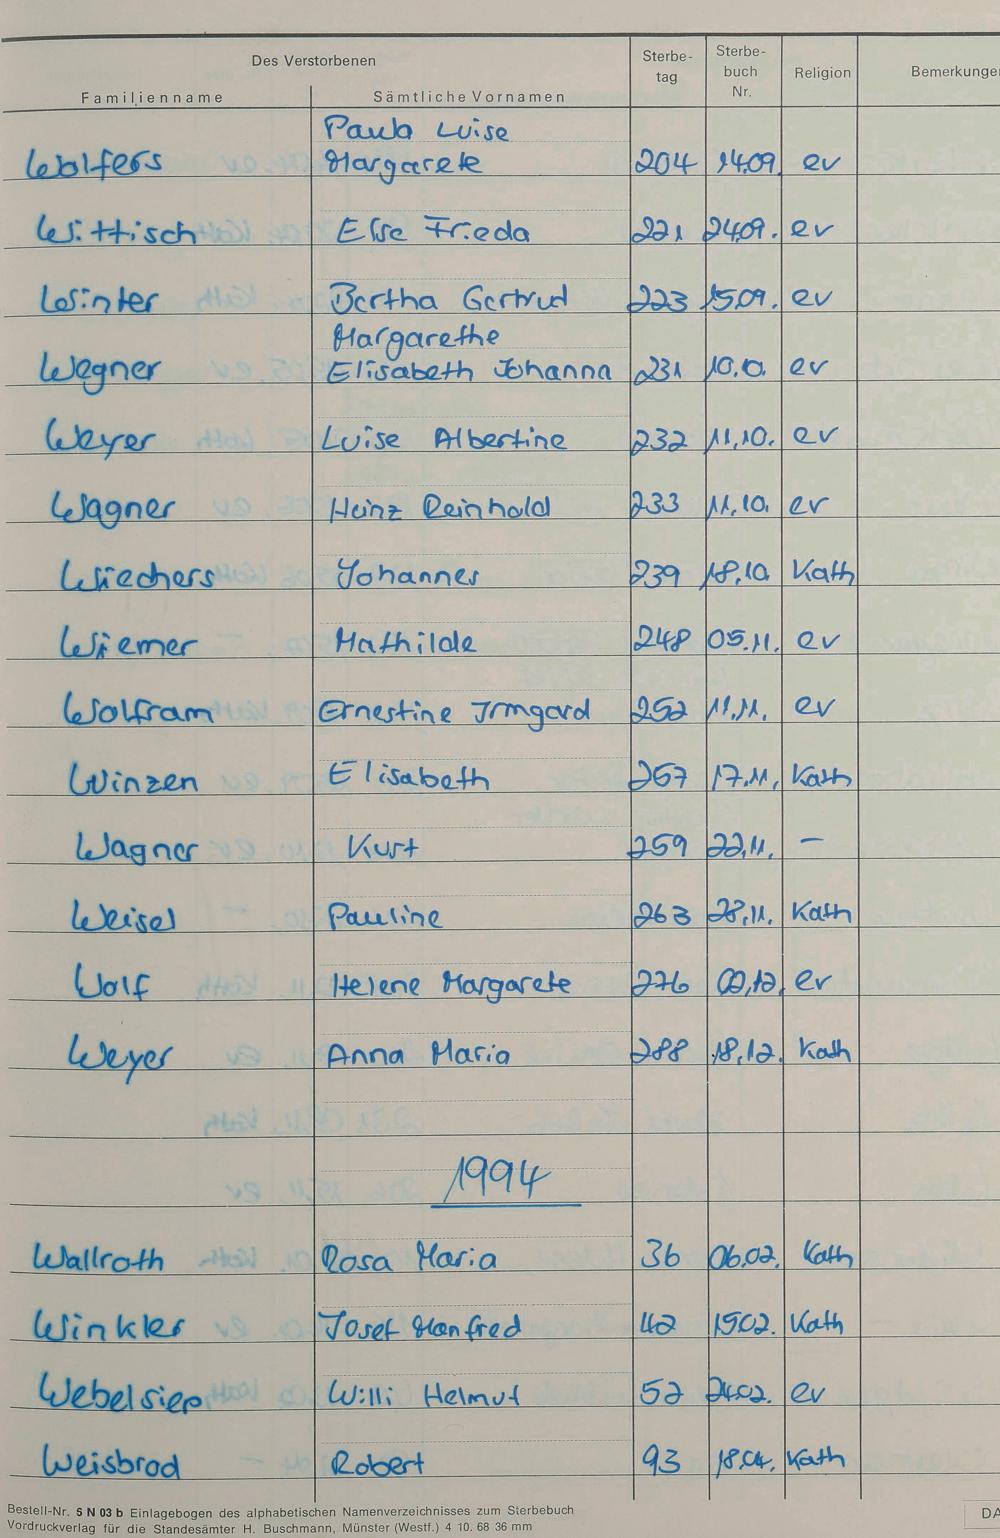 Des Verstorbenen
Familienname Sämtliche Vornamen Sterbe-tag Sterbe-buch Nr. Religion Bemerkungen
Paula Luise
Wolfers Margarete 204 14.09. ev
Wittisch Else Frieda 221 24.09. ev
Winter Bertha Gertrud 223 15.09. ev
Margarethe
Wegner Elisabeth Johanna 231 10.10. ev
Weyer Luise Albertine 232 11.10. ev
Wagner Heinz Reinhold 233 11.10. ev
Wiechers Johannes 239 18.10. Kath
Wiemer Mathilde 248 05.11. ev
Wolfram Ernestine Irmgard 252 11.11. ev
Winzen Elisabeth 257 17.11. Kath
Wagner Kurt 259 22.11. –
Weisel Pauline 263 28.11. Kath
Wolf Helene Margarete 276 02.12. ev
Weyer Anna Maria 288 18.12. Kath
1994
Wallroth Rosa Maria 36 06.02. Kath
Winkler Josef Manfred 42 15.02. Kath
Webelsiep Willi Helmut 52 24.02. ev
Weisbrod Robert 93 18.04. Kath
Bestell-Nr. 5 N 03 b Einlagebogen des alphabetischen Namenverzeichnisses zum Sterbebuch
Vordruckverlag für die Standesämter H. Buschmann, Münster (Westf.) 4 10. 68 36 mm
DA